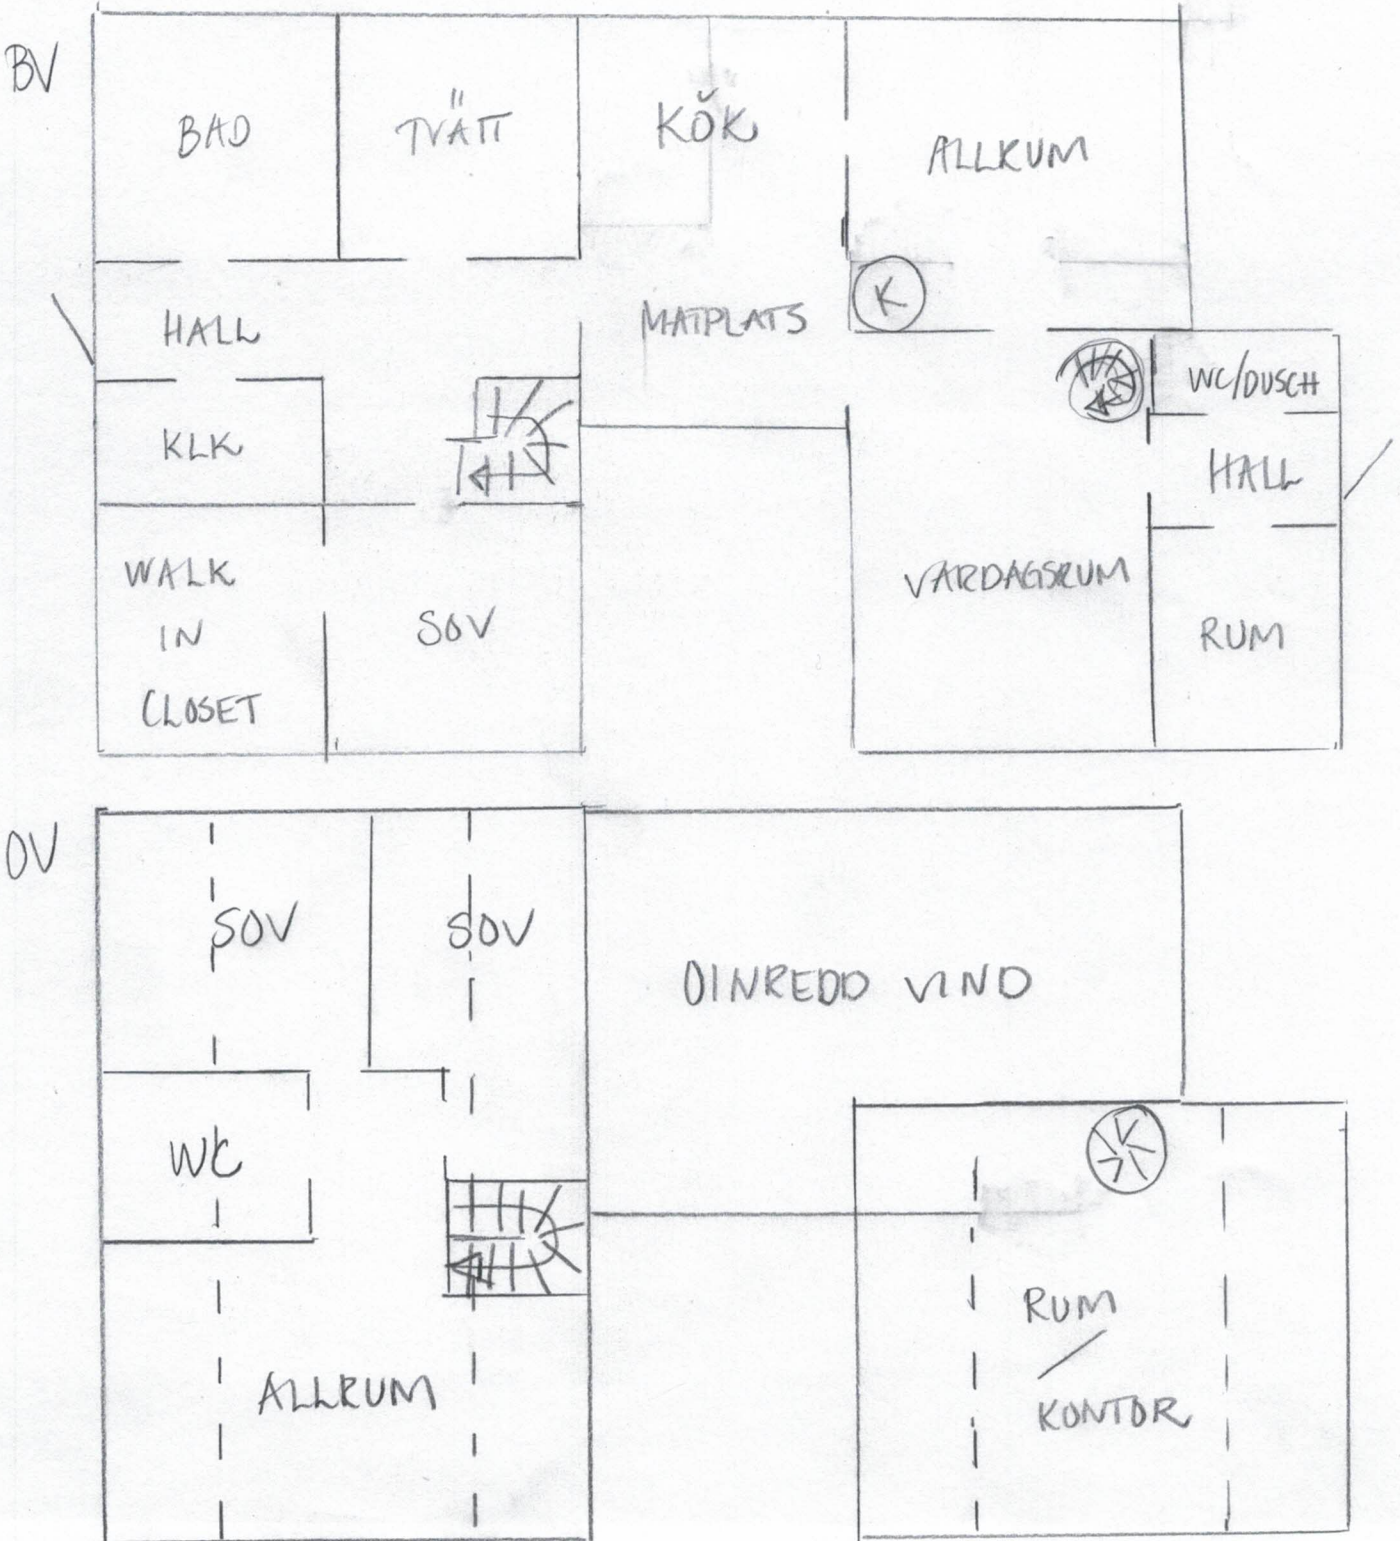 BV
BAD
TVÄTT
KÖK
ALLRUM
HALL
MATPLATS
K
KLK
WC/DUSCH
HALL
WALK
IN
CLOSET
SOV
VARDAGSRUM
RUM
OV
SOV
SOV
OINREDD VIND
WC
RUM
/
KONTOR
ALLRUM